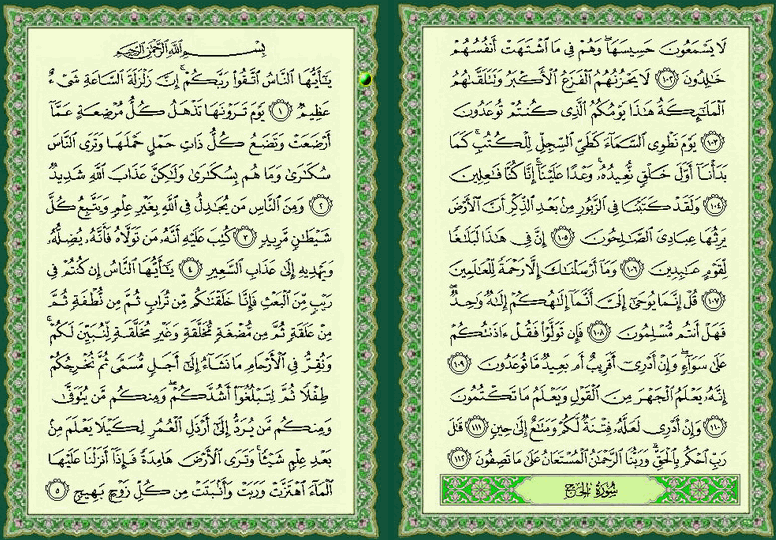 لَا يَسْمَعُونَ حَسِيسَهَا ۖ وَهُمْ فِي مَا اشْتَهَتْ أَنفُسُهُمْ
خَالِدُونَ ١٠٢ لَا يَحْزُنُهُمُ الْفَزَعُ الْأَكْبَرُ وَتَتَلَقَّاهُمُ
الْمَلَائِكَةُ هَٰذَا يَوْمُكُمُ الَّذِي كُنتُمْ تُوعَدُونَ
١٠٣ يَوْمَ نَطْوِي السَّمَاءَ كَطَيِّ السِّجِلِّ لِلْكُتُبِ ۚ كَمَا
بَدَأْنَا أَوَّلَ خَلْقٍ نُّعِيدُهُ ۚ وَعْدًا عَلَيْنَا ۚ إِنَّا كُنَّا فَاعِلِينَ
١٠٤ وَلَقَدْ كَتَبْنَا فِي الزَّبُورِ مِن بَعْدِ الذِّكْرِ أَنَّ الْأَرْضَ
يَرِثُهَا عِبَادِيَ الصَّالِحُونَ ١٠٥ إِنَّ فِي هَٰذَا لَبَلَاغًا
لِّقَوْمٍ عَابِدِينَ ١٠٦ وَمَا أَرْسَلْنَاكَ إِلَّا رَحْمَةً لِّلْعَالَمِينَ
١٠٧ قُلْ إِنَّمَا يُوحَىٰ إِلَيَّ أَنَّمَا إِلَٰهُكُمْ إِلَٰهٌ وَاحِدٌ ۖ
فَهَلْ أَنتُم مُّسْلِمُونَ ١٠٨ فَإِن تَوَلَّوْا فَقُلْ آذَنتُكُمْ
عَلَىٰ سَوَاءٍ ۖ وَإِنْ أَدْرِي أَقَرِيبٌ أَم بَعِيدٌ مَّا تُوعَدُونَ ١٠٩
إِنَّهُ يَعْلَمُ الْجَهْرَ مِنَ الْقَوْلِ وَيَعْلَمُ مَا تَكْتُمُونَ
١١٠ وَإِنْ أَدْرِي لَعَلَّهُ فِتْنَةٌ لَّكُمْ وَمَتَاعٌ إِلَىٰ حِينٍ ١١١ قَالَ
رَبِّ احْكُم بِالْحَقِّ ۗ وَرَبُّنَا الرَّحْمَٰنُ الْمُسْتَعَانُ عَلَىٰ مَا تَصِفُونَ ١١٢
سُورَةُ الحَجّ
بِسْمِ اللَّهِ الرَّحْمَٰنِ الرَّحِيمِ
يَا أَيُّهَا النَّاسُ اتَّقُوا رَبَّكُمْ ۚ إِنَّ زَلْزَلَةَ السَّاعَةِ شَيْءٌ
عَظِيمٌ ١ يَوْمَ تَرَوْنَهَا تَذْهَلُ كُلُّ مُرْضِعَةٍ عَمَّا
أَرْضَعَتْ وَتَضَعُ كُلُّ ذَاتِ حَمْلٍ حَمْلَهَا وَتَرَى النَّاسَ
سُكَارَىٰ وَمَا هُم بِسُكَارَىٰ وَلَٰكِنَّ عَذَابَ اللَّهِ شَدِيدٌ
٢ وَمِنَ النَّاسِ مَن يُجَادِلُ فِي اللَّهِ بِغَيْرِ عِلْمٍ وَيَتَّبِعُ كُلَّ
شَيْطَانٍ مَّرِيدٍ ٣ كُتِبَ عَلَيْهِ أَنَّهُ مَن تَوَلَّاهُ فَأَنَّهُ يُضِلُّهُ
وَيَهْدِيهِ إِلَىٰ عَذَابِ السَّعِيرِ ٤ يَا أَيُّهَا النَّاسُ إِن كُنتُمْ فِي
رَيْبٍ مِّنَ الْبَعْثِ فَإِنَّا خَلَقْنَاكُم مِّن تُرَابٍ ثُمَّ مِن نُّطْفَةٍ ثُمَّ
مِنْ عَلَقَةٍ ثُمَّ مِن مُّضْغَةٍ مُّخَلَّقَةٍ وَغَيْرِ مُخَلَّقَةٍ لِّنُبَيِّنَ لَكُمْ ۚ
وَنُقِرُّ فِي الْأَرْحَامِ مَا نَشَاءُ إِلَىٰ أَجَلٍ مُّسَمًّى ثُمَّ نُخْرِجُكُمْ
طِفْلًا ثُمَّ لِتَبْلُغُوا أَشُدَّكُمْ ۖ وَمِنكُم مَّن يُتَوَفَّىٰ
وَمِنكُم مَّن يُرَدُّ إِلَىٰ أَرْذَلِ الْعُمُرِ لِكَيْلَا يَعْلَمَ مِن
بَعْدِ عِلْمٍ شَيْئًا ۚ وَتَرَى الْأَرْضَ هَامِدَةً فَإِذَا أَنزَلْنَا عَلَيْهَا
الْمَاءَ اهْتَزَّتْ وَرَبَتْ وَأَنبَتَتْ مِن كُلِّ زَوْجٍ بَهِيجٍ ٥